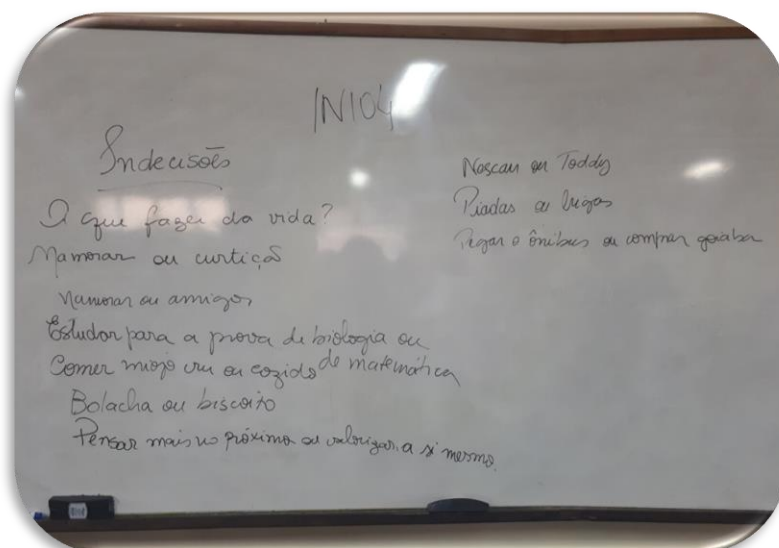 IN104
Indecisões
O que fazer da vida?
Namorar ou curtição
Namorar ou amigos
Estudar para a prova de biologia ou
de matemática
Comer miojo cru ou cozido
Bolacha ou biscoito
Pensar mais no próximo ou valorizar a si mesmo.
Nescau ou Toddy
Piadas ou brigas
Pegar o ônibus ou comprar goiaba